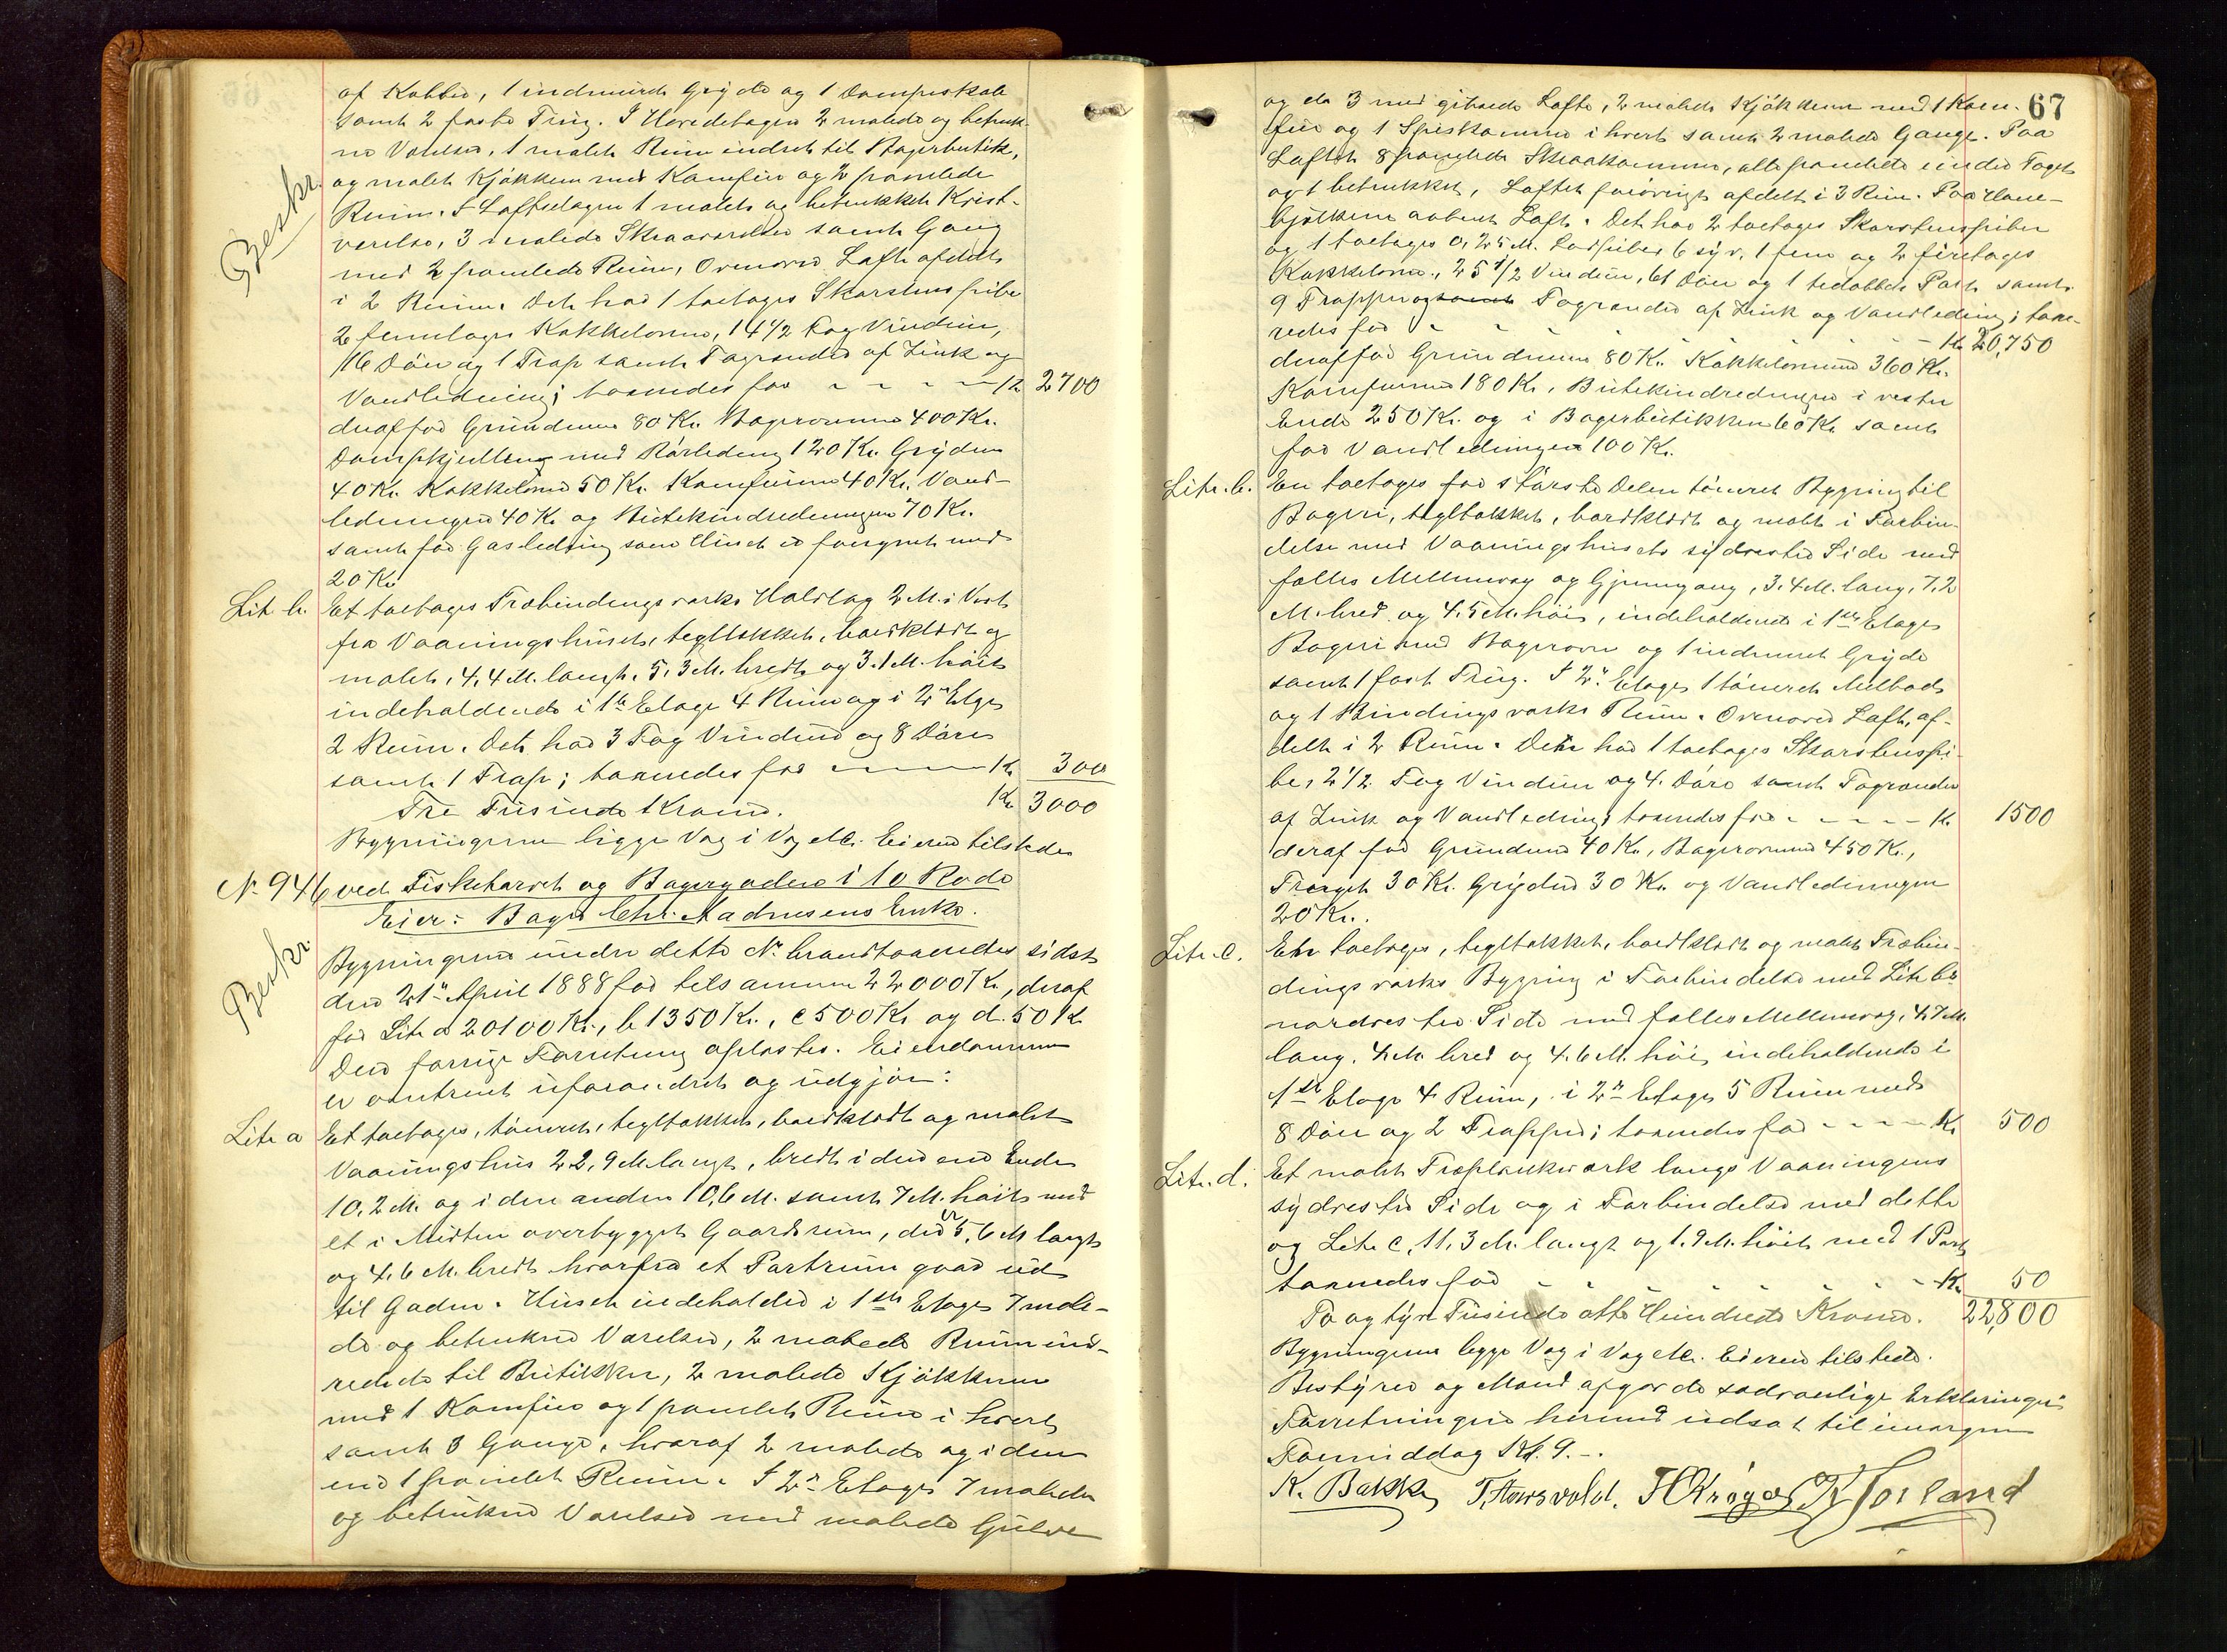 af Kobber, 1 indmuret Gryde og 1 Dampeskab
samt 2 faste Trug. I Hovedetagen 2 malede og betruk-
ne Værelser, 1 malet Rum indret til Bagerbutik,
og malet Kjøkken med Komfur og 2 panelede
Beskr.
Rum. I Loftsetagen 1 malet og betrukket Kvist-
værelse, 3 malede Skraaværelser samt Gang
med 2 panelede Rum, Ovenover Loft afdelt
i 2 Rum. Det har 1 toetages Skorstenspibe
2 femetages Kakkelovne, 14 1/2 Fag Vinduer,
16 Døre og 1 Trap samt Tagrender af Zink og
Vandledning; taxeredes for - - - - Kr 2700
deraf for Grundmur 80 Kr. Bagerovnen 400 Kr.
Dampkjedlen med Rørledning 120 Kr. Gryden
40 Kr. Kakkelovne 50 Kr. Komfurene 40 Kr. Vand-
ledningen 40 Kr og Butikindredningen 70 Kr.
samt for Gasledning som Huset er forsynet med
20 Kr.
Lit. b. Et toetages Træbindingsværks Halvtag 2 M. i Vest
fra Vaaningshuset, tegltækket, bordklædt og
malet, 4,4 M. langt, 5,3 M. bredt og 3,1 M. høit
indeholdende i 1ste Etage 4 Rum og i 2n Etge
2 Rum. Det har 3 Fag Vinduer og 8 Døre
samt 1 Trap; taxeredes for - - - - Kr 300
Tre Tusinde Kroner. Kr 3000
Bygningerne ligge Væg i Væg Mr. Eieren tilstede
No 946 ved Fisketorvet og Bagergaden i 10 Rode
Eier: Bager Chr. Aadnesens Enke.
Beskr.
Bygningerne under dette No brandtaxeredes sidst
den 21n April 1888 for tilsammen 22000 Kr, deraf
for Litr a 20100 Kr., b 1350 Kr., c 500 Kr og d. 50 Kr
Den forrige Forretning oplæstes. Eiendommen
er omtrent uforandret og udgjør:
Litr a Et toetages, tømret, tegltækket, bordklædt og malet
Vaaningshus 22,9 M langt, bredt i den ene Ende
10,2 M. og i den anden 10,6 M. samt 7 M. høit med
et i Midten overbygget Gaardsrum, der er 5,6 M langt
og 4,6 M. bredt hvorfra et Portrum gaar ud
til Gaden. Huset indeholder i 1ste Etage 7 male-
de og betrukne Værelser, 2 malede Rum ind-
redede til Butikker, 2 malede Kjøkkener
med 1 Komfur og 1 panelet Rum i hvert
samt 3 Gange, hvoraf 2 malede og i den
ene 1 panelet Rum. I 2n Etage 7 malede
og betrukne Værelser med malede Gulve
67
og de 3 med gibsede Lofte, 2 malede Kjøkkener med 1 Kom-
fur og 1 Spiskammer i hvert samt 2 malede Gange. Paa
Loftet 8 panelede Skraakammere, alle panelede under Taget
og 1 betrukket, Loftet forøvrigt afdelt i 3 Rum. Paa Hane-
bjelkene aabent Loft. Det har 2 toetages Skorstenspiber
og 1 toetages 0,25 M. Lodpiber 6 syv, 1 fem og 2 fireetages
Kakkelovne, 25 1/2 Vinduer, 61 Døre og 1 tedobbelt Port samt
9 Trapper og samt Tagrender af Zink og Vandledning; taxe-
redes for - - - - - - Kr 20,750
deraf for Grundmur 80 Kr. Kakkelovnene 360 Kr.
Komfurene 180 Kr, Butikindredningen i vestre
Ende 250 Kr. og i Bagerbutikken 60 Kr samt
for Vandledningen 100 Kr.
Litr. b. En toetages for største Delen tømret Bygning til
Bageri, tegltækket, bordklædt og malt i Forbin-
delse med Vaaningshusets sydvestre Side med
fælles Mellemvæg og Gjennemgang, 3,4 M. lang, 7,2
M. bred og 4,5 M. høi, indeholdende i 1ste Etage
Bageri med Bagerovn og 1 indmuret Gryde
samt 1 fast Trug. I 2n Etage 1 tømret Melbod
og 1 Bindingsværks Rum. Ovenover Loft, af-
delt i 2 Rum. Den har 1 toetages Skorstenspi-
be, 2 1/2 Fag Vinduer og 4 Døre samt Tagrender
af Zink og Vandledning taxeredes for - - - - - Kr. 1500
deraf for Grundmur 40 Kr, Bagerovnen 450 Kr.,
Truget 30 Kr. Gryden 30 Kr. og Vandledningen
20 Kr.
Litr. c. En toetages, tegltækket, bordklædt og malet Træbin-
dingsværks Bygning i Forbindelse med Litr b's
nordvestre Side med fælles Mellemvæg, 4,7 M.
lang, 4 M. bred og 4,6 M. høi, indeholdende i
1ste Etage 4 Rum, i 2n Etage 5 Rum med
8 Døre og 2 Trapper; taxeredes for - - - - Kr. 500
Litr. d. Et malet Træplankeværk langs Vaaningens
sydvestre Side og i Forbindelse med dette
og Litr c, 11,3 M. langt og 1,9 M. høit med 1 Port
taxeredes for - - - - - - Kr. 50
To og tyve Tusinde otte Hundrede Kroner. 22,800
Bygningerne ligge Væg i Væg Mr. Eieren tilstede.
Bestyrer og Mænd afgav de sædvanlige Erklæringer
Forretningen hermed udsat til imorgen
Formiddag Kl. 9.-.
K. Bakke T. Aarsvold. H Krøger K Jorland